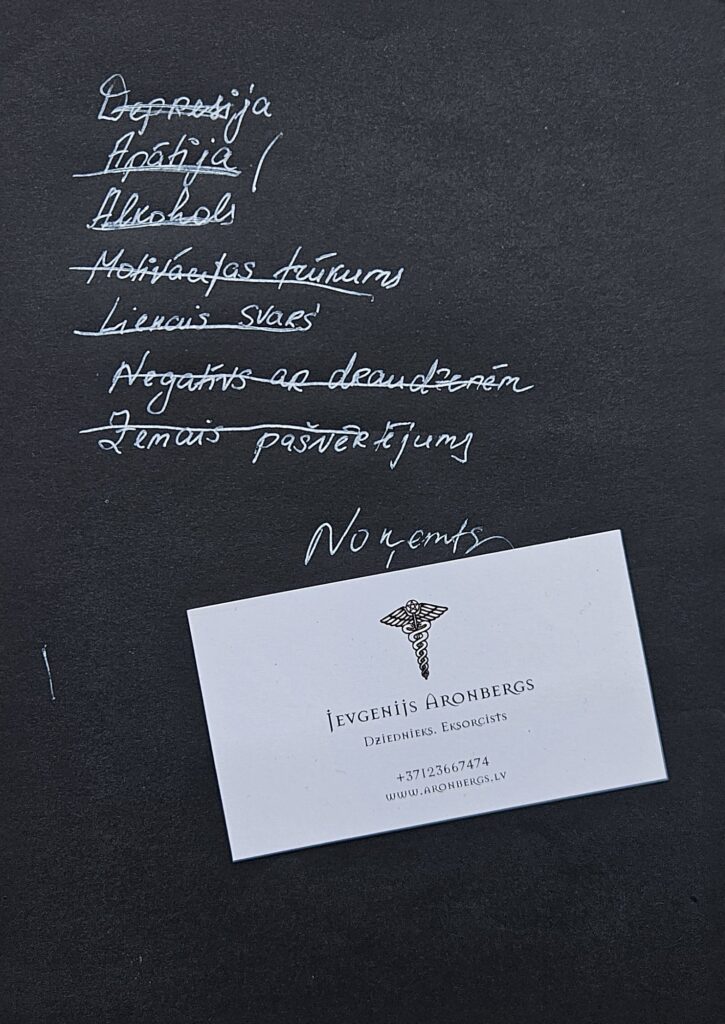 Depresija
Apātija
Alkohols
Motivācijas trūkums
Liekais svars
Negatīvs ar draudzenēm
Zemais pašvērtējums
Noņemts
Jevgenijs Aronbergs
Dziednieks, Eksorcists
+37123667474
www.aronbergs.lv